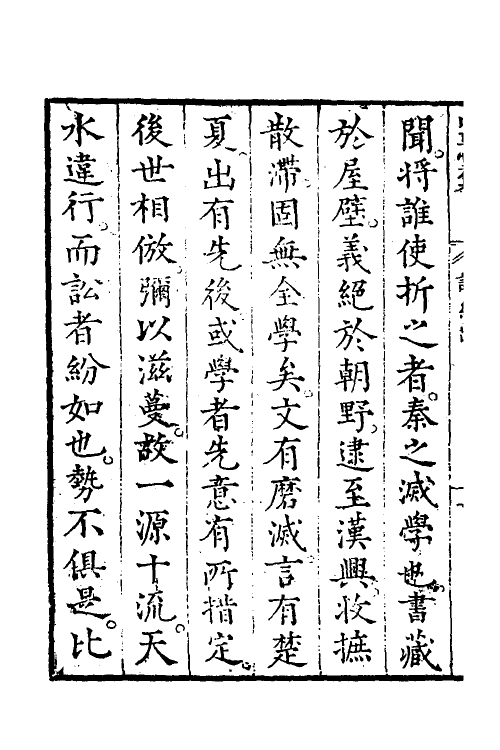 聞。將誰使折之者。秦之滅學也。書藏
於屋壁。義絕於朝野。逮至漢興。收摭
散滯。固無全學矣。文有磨滅。言有楚
夏。出有先後。或學者先意有所措定。
後世相倣。彌以滋蔓。故一源十流。天
水違行。而訟者紛如也。勢不俱是。比